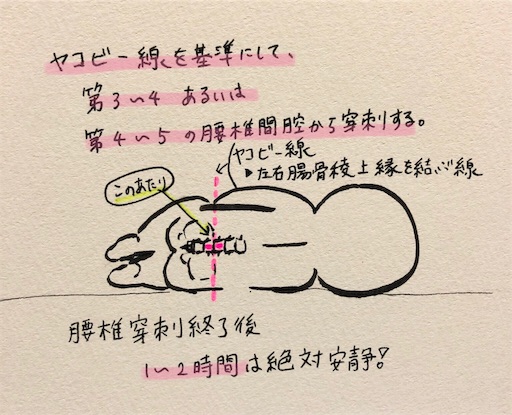 ヤコビー線を基準にして、
第3〜4 あるいは
第4〜5 の腰椎間腔から穿刺する。
ヤコビー線
▶左右腸骨稜上縁を結ぶ線
このあたり
腰椎穿刺終了後
1〜2時間は絶対安静!